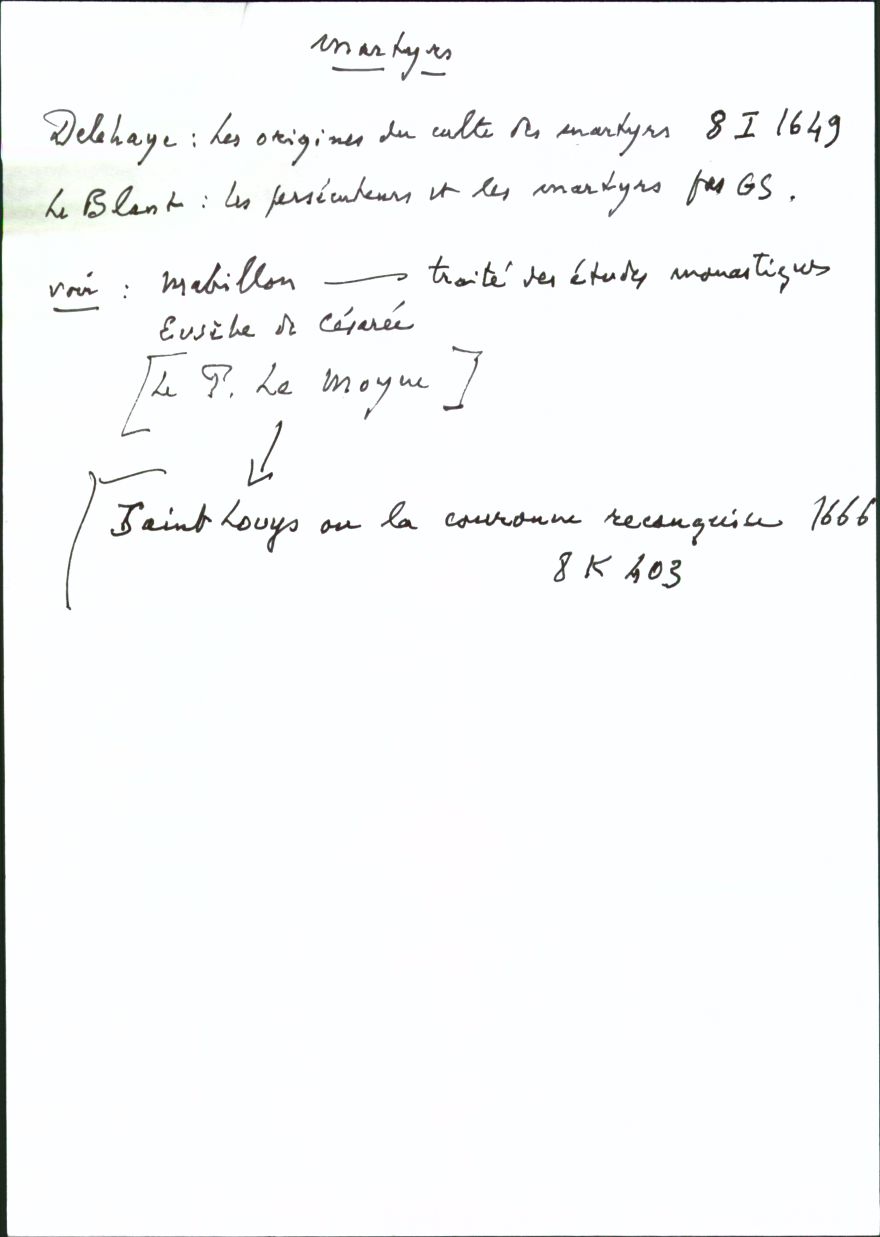 martyrs
Delehaye : Les origines du culte des martyrs 8 I 1649
Le Blant : les persécuteurs et les martyrs pas GS.
voir : Mabillon → traité des études monastiques
Eusèbe de Césarée
[Le P. Le Moyne]
↓
Saint Louys ou la couronne reconquise 1666
8 K 403